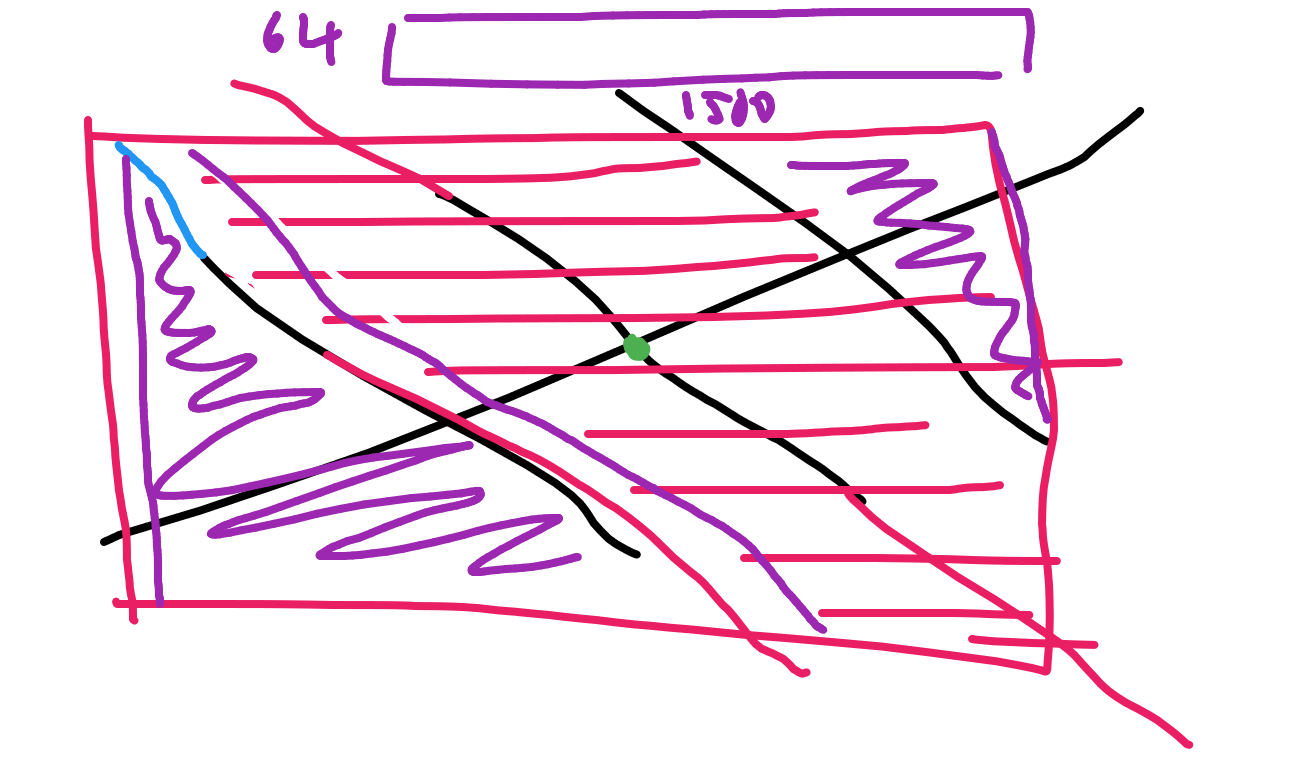 64
1500